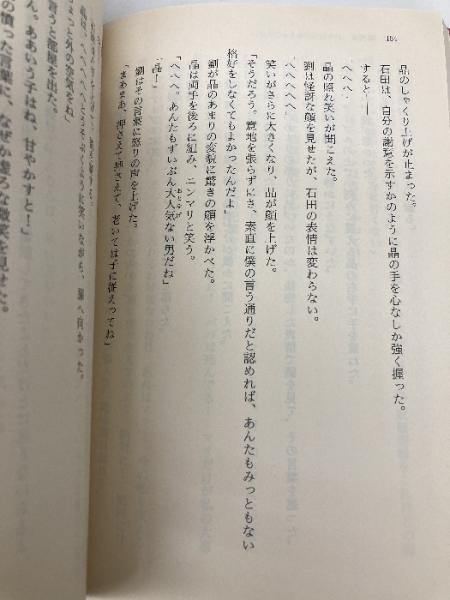 154
晶のしゃくり上げが止まった。
石田は、自分の謝意を示すかのように晶の手を心なしか強く握った。
すると――
「へへへ」
晶の照れ笑いが聞こえた。
劉は怪訝な顔を見せたが、石田の表情は変わらない。
「へへへへ」
笑いがさらに大きくなり、晶が顔を上げた。
「そうだろう。意地を張らずにさ、素直に僕の言う通りだと認めれば、あんたもみっともない
格好をしなくてもよかったんだよ」
劉が晶のあまりの変貌に驚きの顔を浮かべた。
晶は両手を後ろに組み、ニンマリと笑う。
「へへへ。あんたもずいぶん大人気ない男だね」
おとなげ
「晶！」
劉はその言葉に怒りの声を上げた。
「まあまあ、押さえて押さえて、老いては子に従えってね」
晶は、へへへへ
ように笑いながら、扉へ向かった。
ょっと外の空気をね」
言うと部屋を出た。
ん。ああいう子はね、甘やかすと！」
の憤った言葉に、なぜか虚ろな
を見せた。